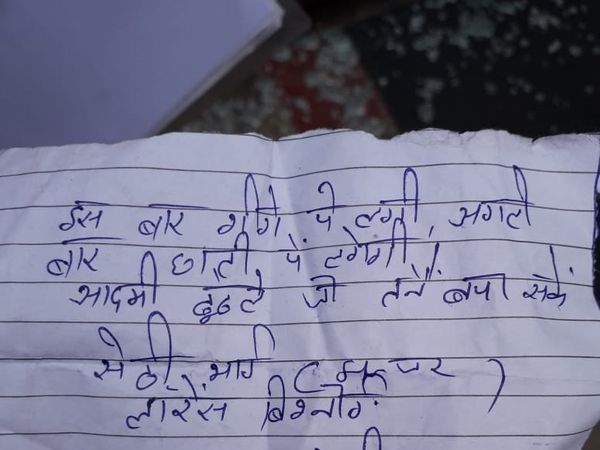 इस बार गोडो पे लगी, अगली
बार छाती पे लगेगी।
आदमी ढूंढले जो तनै बचा सकें
सेठी भाई (
लारेंस बिश्नोई